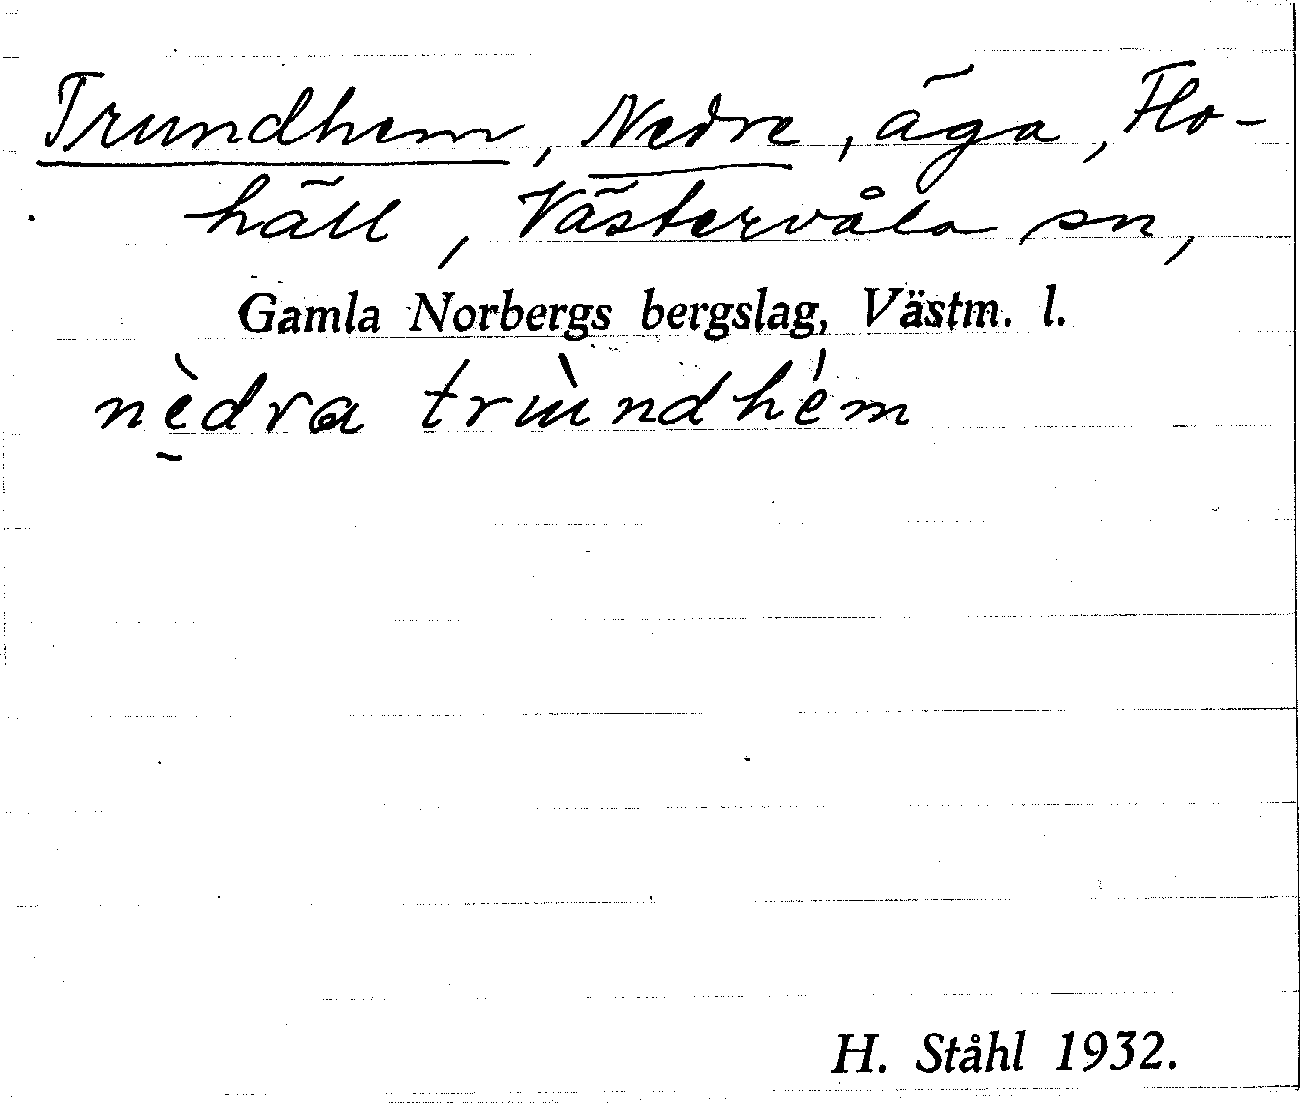 Trundhem, Nedre, äga, Flo-
häll, Västervåla sn,
Gamla Norbergs bergslag, Västm. l.
nè̱dra trùndhém
H. Ståhl 1932.